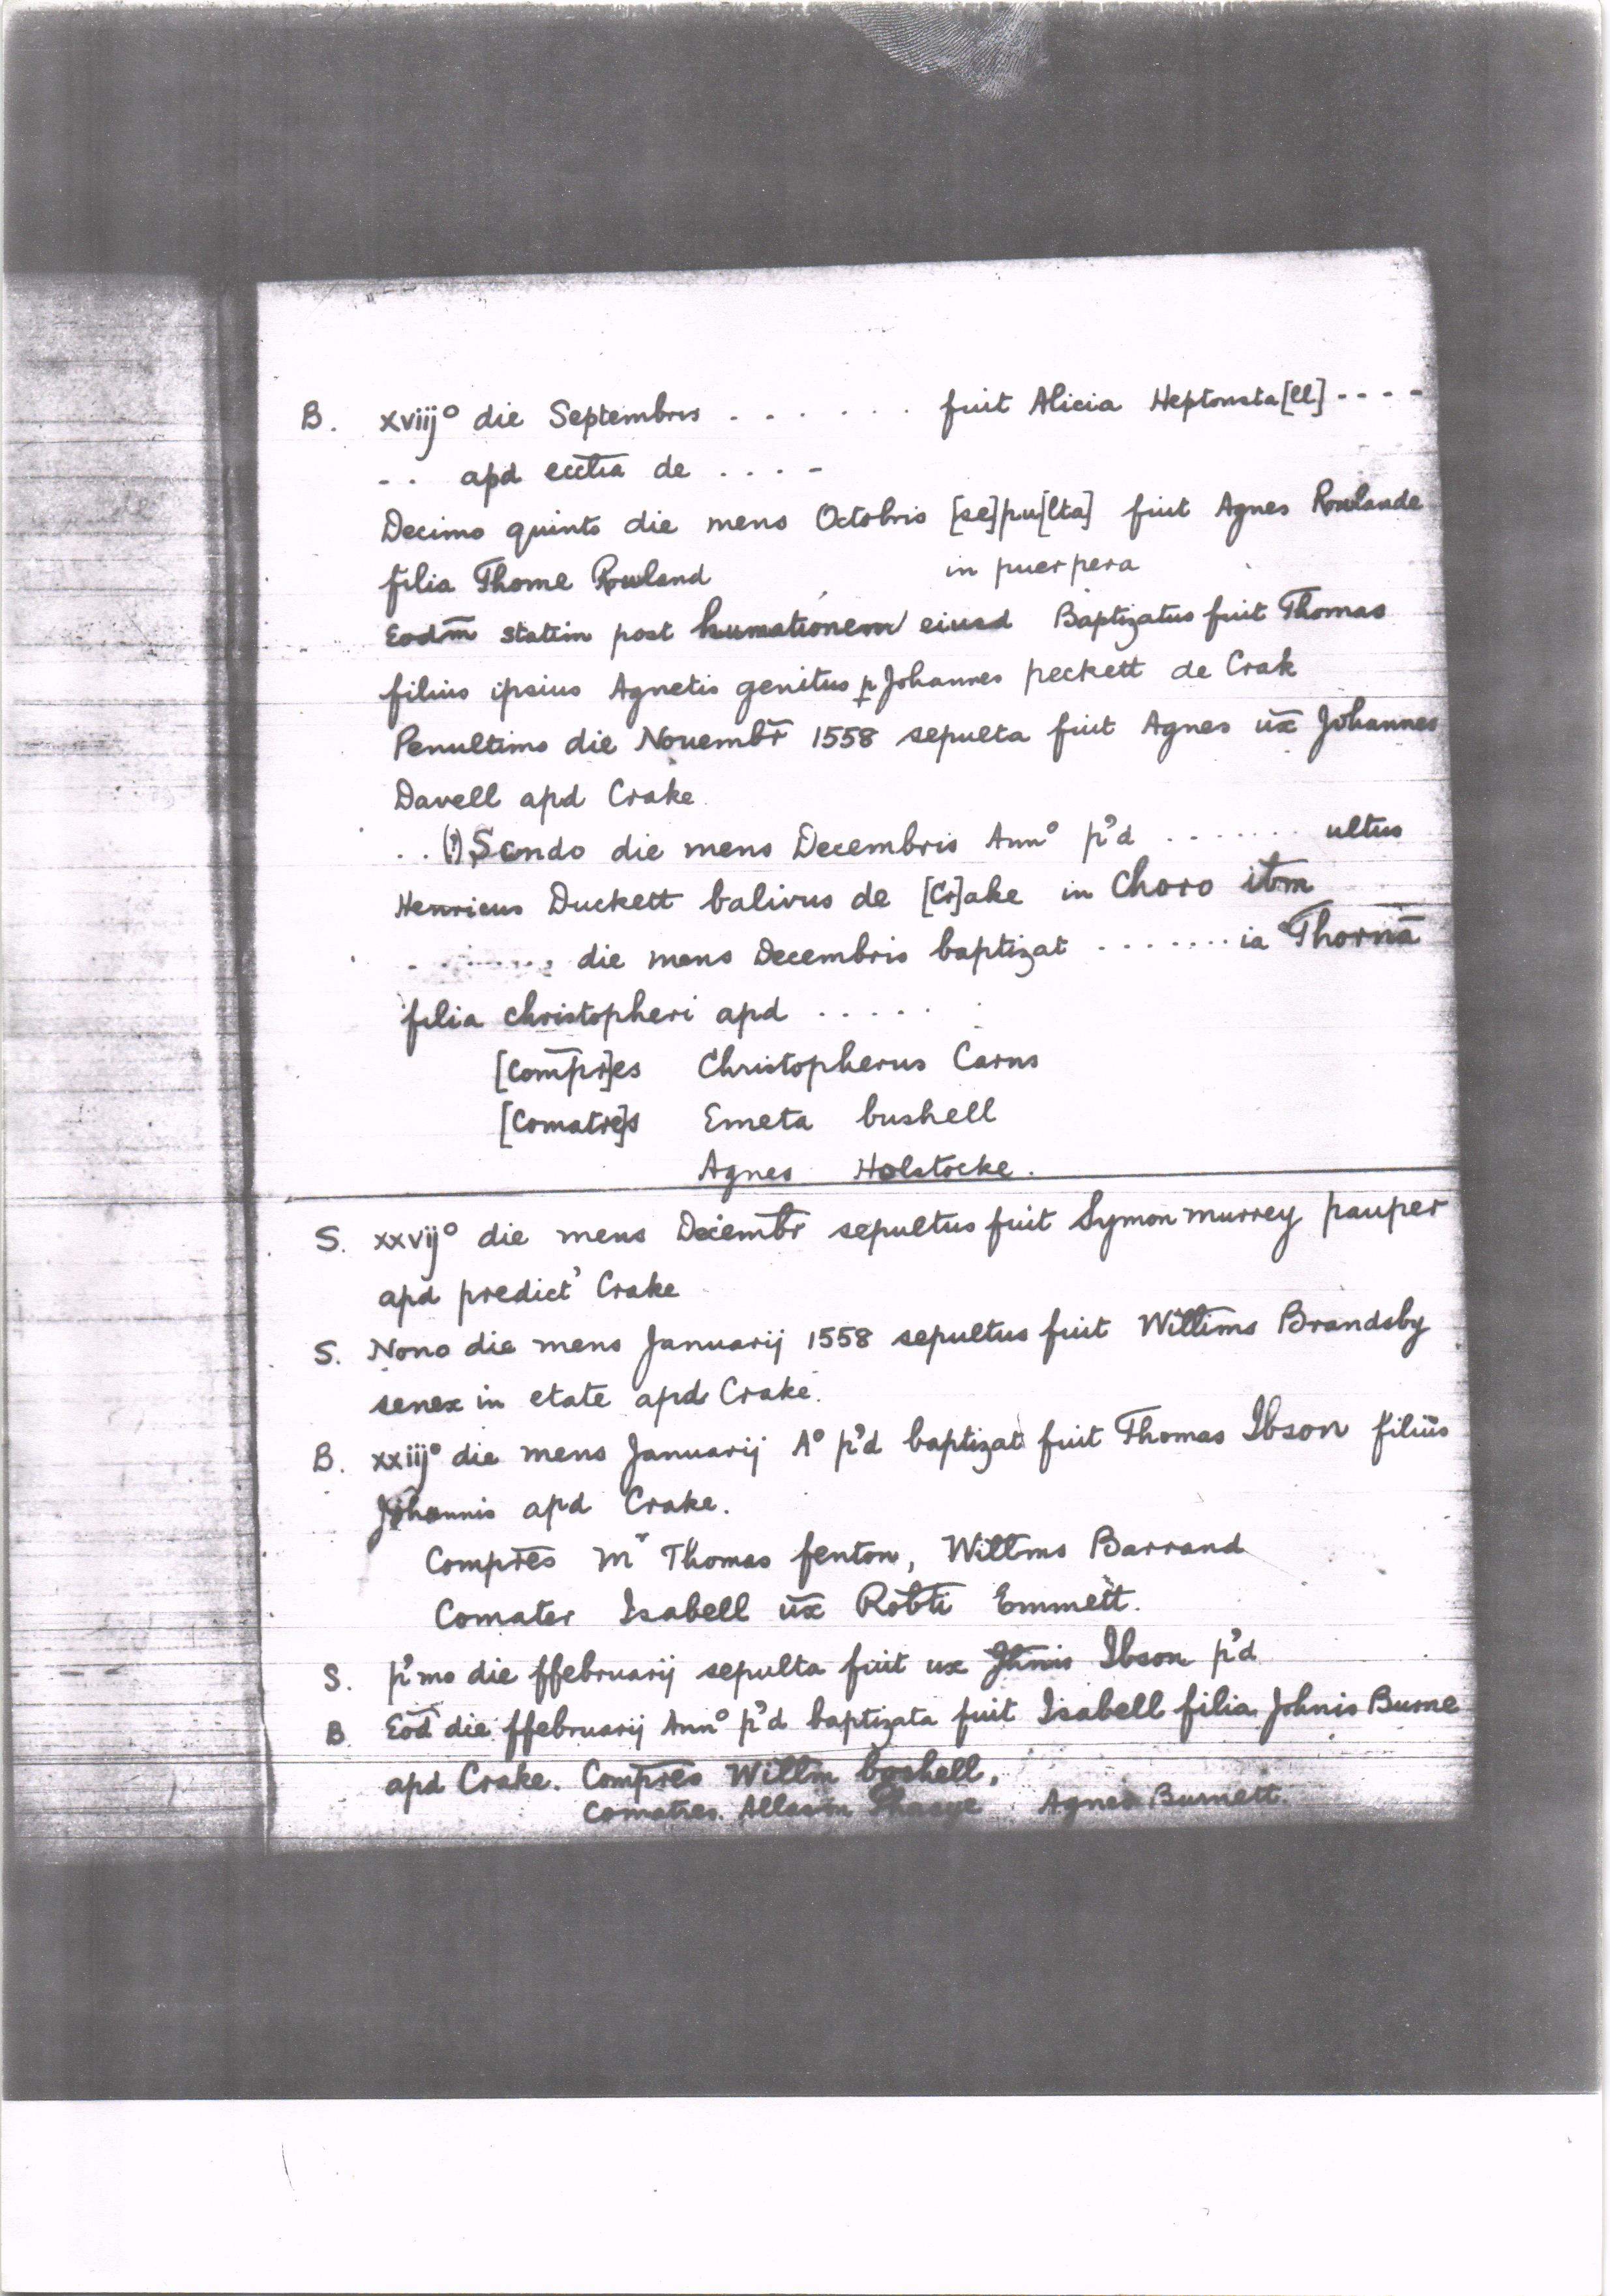 B. xviijo die Septembris . . . . . . fuit Alicia Heptonsta[ll] - - - -
- . . apd ecctia de . . . . -
Decimo quinto die mens Octobris [se]pu[lta] fuit Agnes Rowlande
filia Thome Rowland in puerpera
Eodm̄ statim post humationem eiusd Baptizatus fuit Thomas
filius ipsius Agnetis genitus p Johannes peckett de Crak
Penultimo die Novembr̄ 1558 sepulta fuit Agnes ux̄ Johannes
Davell apd Crake
. . (?) Scndo die mens Decembris Anno p'd . . . . . . . ultus
Henricus Duckett balivus de [Cr]ake in Choro itm̄
. . . . . . . die mens Decembris baptizat . . . . . . . ia Thornā
filia christopheri apd . . . . .
[Comp̄r]es Christopherus Carns
[Comatre]s Emeta bushell
Agnes Holstocke.
S. xxvijo die mens Decembr̄ sepultus fuit Symon murrey pauper
apd predict' Crake
S. Nono die mens Januarij 1558 sepultus fuit Willims Brandsby
senex in etate apd Crake.
B. xxiijo die mens Januarij Ao p'd baptizat fuit Thomas Ibson filius
Johannis apd Crake.
Compr̄es Mr Thomas fenton, Willms Barrand
Comater Isabell ux̄ Robti Emmett.
S. p'mo die ffebruarij sepulta fuit ux Jhnis Ibson p'd
B Eod̄ die ffebruarij Anno p'd baptizata fuit Isabell filia Johnis Burne
apd Crake. Compr̄es Willm boshell,
Comatres. Allason Agnes Burnett.